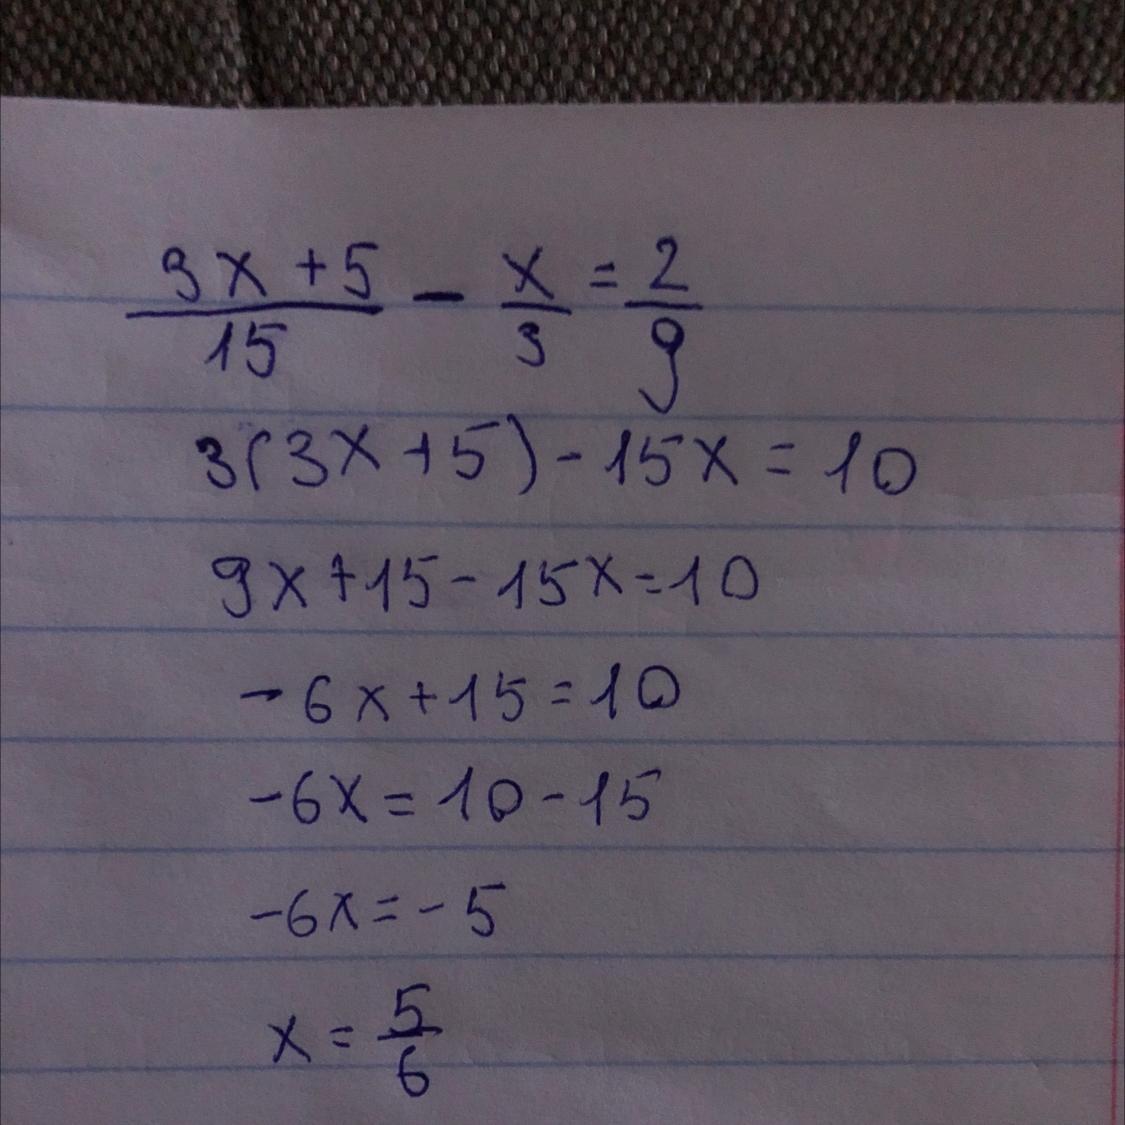 3x+5/15 - x/3 = 2/9
3(3x+5)-15x=10
9x+15-15x=10
-6x+15=10
-6x=10-15
-6x=-5
x=5/6